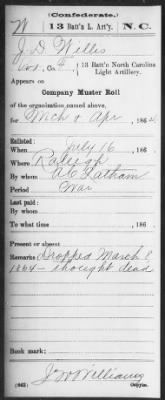 (Confederate.)
W 13 Batt'n L. Art'y. N. C.
J. D. Willis
Co. 13 Batt'n North Carolina
Light Artillery.
Appears on
Company Muster Roll
of the organization named above,
for Mch & Apr, 186
Enlisted:
When July 16, 186
Where Raleigh
By whom A C Latham
Period War
Last paid:
By whom
To what time , 186
Present or absent
Remarks: Dropped March 8
1864 - thought dead
Book mark:
J W Williams
(642) Copyist.